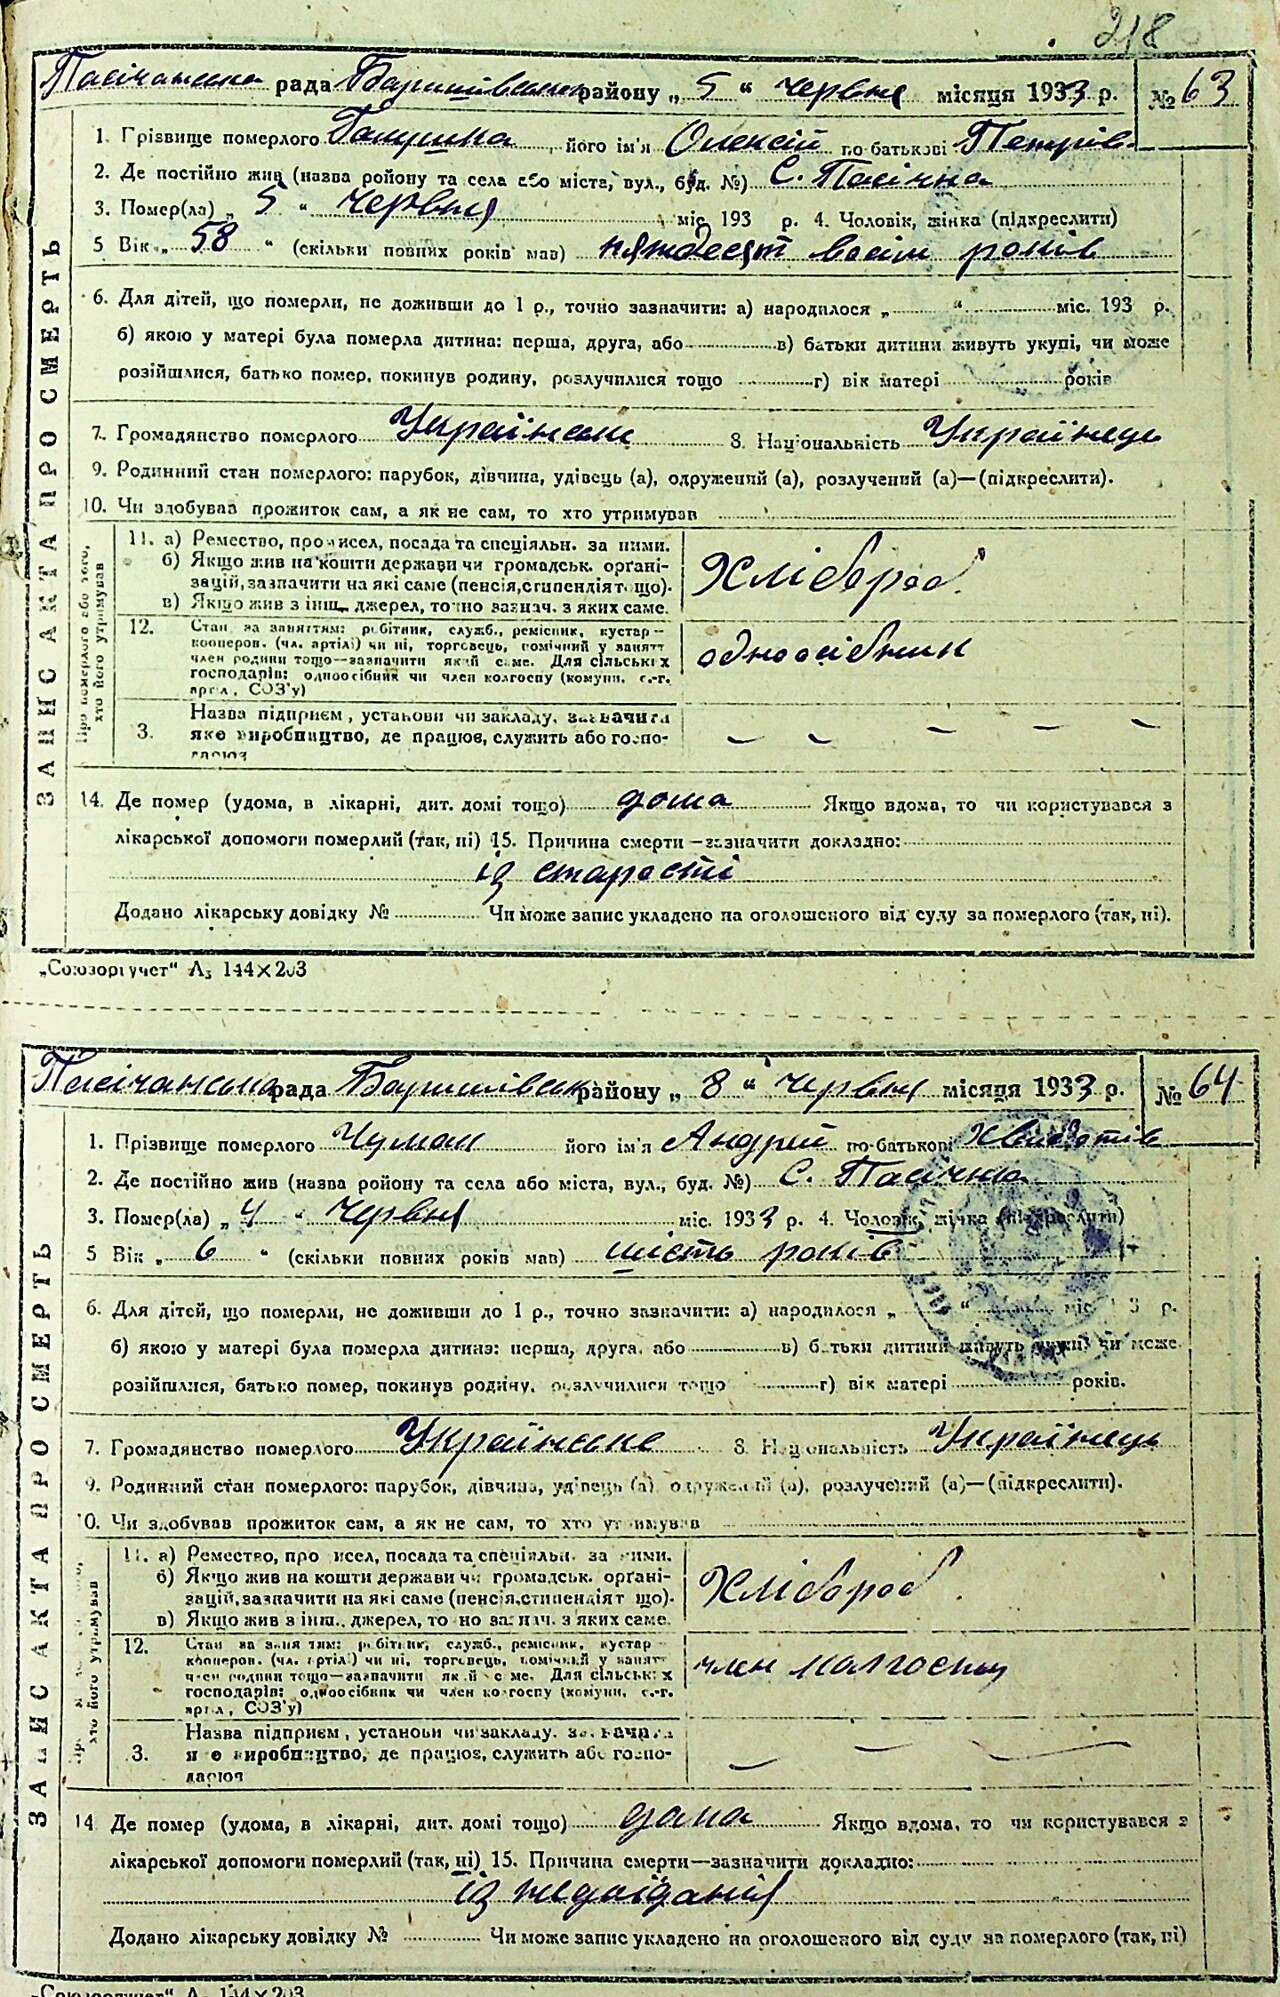 218
Пасічанська рада Баришівськ району „ 5 “ червня місяця 1933 р. № 63
1. Прізвище померлого його ім'я Олексій по батькові Петрів
2. Де постійно жив (назва району та села або міста, вул., буд. №) С. Пасічна
3. Помер(ла) „ 5 “ червня міс. 193 р. 4. Чоловік, жінка (підкреслити)
5 Вік „ 58 “ (скільки повних років мав) пятдесят восім років
6. Для дітей, що померли, не доживши до 1 р., точно зазначити: а) народилося „ “ міс. 193 р.
б) якою у матері була померла дитина: перша, друга, або в) батьки дитини живуть укупі, чи може
розійшлися, батько помер, покинув родину, розлучилися тощо г) вік матері років
7. Громадянство померлого Українське 8. Національність Українець
9. Родинний стан померлого: парубок, дівчина, удівець (а), одружений (а), розлучений (а)—(підкреслити).
10. Чи здобував прожиток сам, а як не сам, то хто утримував
11. а) Ремество, промисел, посада та спеціяльн. за ними.
б) Якщо жив на кошти держави чи громадськ. орґані-
зацій, зазначити на які саме (пенсія, стипендія тощо).
в) Якщо жив з інш. джерел, точно зазнач. з яких саме.
Хлібороб.
12. Стан за заняттям: робітник, служб., ремісник, кустар—
кооперов. (чл. артілі) чи ні, торговець, помічний у занятт
член родини тощо—зазначити який саме. Для сільських
господарів: одноосібник чи член колгоспу (комуни, с.-г.
артіл, СОЗ'у)
одноосібник
3. Назва підприєм, установи чи закладу, зазначити
яке виробництво, де працює, служить або госпо-
дарює
Про померлого або того,
хто його утримував
ЗАПИС АКТА ПРО СМЕРТЬ
14. Де помер (удома, в лікарні, дит. домі тощо) дома Якщо вдома, то чи користувався з
лікарської допомоги померлий (так, ні) 15. Причина смерти—зазначити докладно:
ід старости
Додано лікарську довідку № Чи може запис укладено на оголошеного від суду за померлого (так, ні).
„Союзоргучет“ А5 144×203
Пасічанська рада Баришівськ району „ 8 “ червня місяця 1933 р. № 64
1. Прізвище померлого Чумак його ім'я Андрій по батькові
2. Де постійно жив (назва району та села або міста, вул., буд. №) С. Пасічна
3. Помер(ла) „ 4 “ червня міс. 1933 р. 4. Чоловік, жінка (підкреслити)
5 Вік „ 6 “ (скільки повних років мав) шість років
6. Для дітей, що померли, не доживши до 1 р., точно зазначити: а) народилося „ “ міс. 193 р.
б) якою у матері була померла дитина: перша, друга, або в) батьки дитини живуть укупі, чи може
розійшлися, батько помер, покинув родину, розлучилися тощо г) вік матері років.
7. Громадянство померлого Українське 8. Національність Українець
9. Родинний стан померлого: парубок, дівчина, удівець (а), одружений (а), розлучений (а)—(підкреслити).
10. Чи здобував прожиток сам, а як не сам, то хто утримував
11. а) Ремество, промисел, посада та спеціяльн. за ними.
б) Якщо жив на кошти держави чи громадськ. орґані-
зацій, зазначити на які саме (пенсія, стипендія тощо).
в) Якщо жив з інш. джерел, точно зазнач. з яких саме.
Хлібороб.
12. Стан за заняттям: робітник, служб., ремісник, кустар—
кооперов. (чл. артілі) чи ні, торговець, помічний у занятт
член родини тощо—зазначити який саме. Для сільських
господарів: одноосібник чи член колгоспу (комуни, с.-г.
артіл, СОЗ'у)
член колгоспу
3. Назва підприєм, установи чи закладу, зазначити
яке виробництво, де працює, служить або госпо-
дарює
хто його утримував
ЗАПИС АКТА ПРО СМЕРТЬ
14 Де помер (удома, в лікарні, дит. домі тощо) дома Якщо вдома, то чи користувався з
лікарської допомоги померлий (так, ні) 15. Причина смерти—зазначити докладно:
ід недоїдання
Додано лікарську довідку № Чи може запис укладено на оголошеного від суду за померлого (так, ні)
„Союзоргучет“ А5 144×203